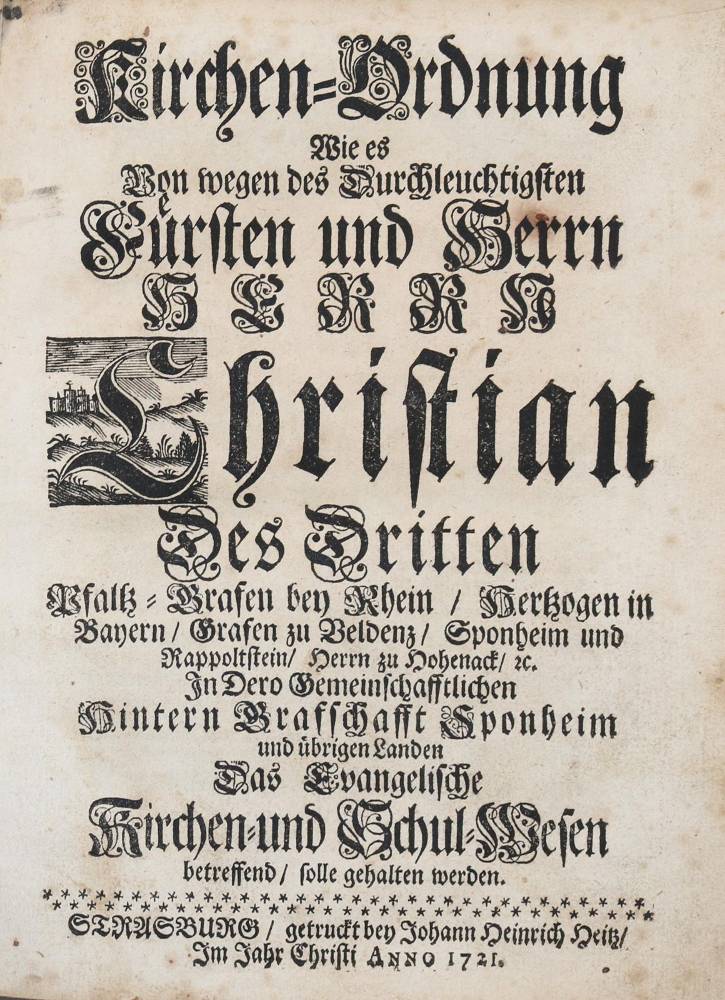 Kirchen-Ordnung
Wie es
Von wegen des Durchleuchtigsten
Fürsten und Herrn
HERRN
Christian
Des Dritten
Pfaltz-Grafen bey Rhein / Hertzogen in
Bayern / Grafen zu Veldenz / Sponheim und
Rappoltstein / Herrn zu Hohenack / ꝛc.
In Dero Gemeinschafftlichen
Hintern Grafschafft Sponheim
und übrigen Landen
Das Evangelische
Kirchen-und Schul-Wesen
betreffend / solle gehalten werden.
STRASBURG / getruckt bey Johann Heinrich Heitz /
Im Jahr Christi ANNO 1721.